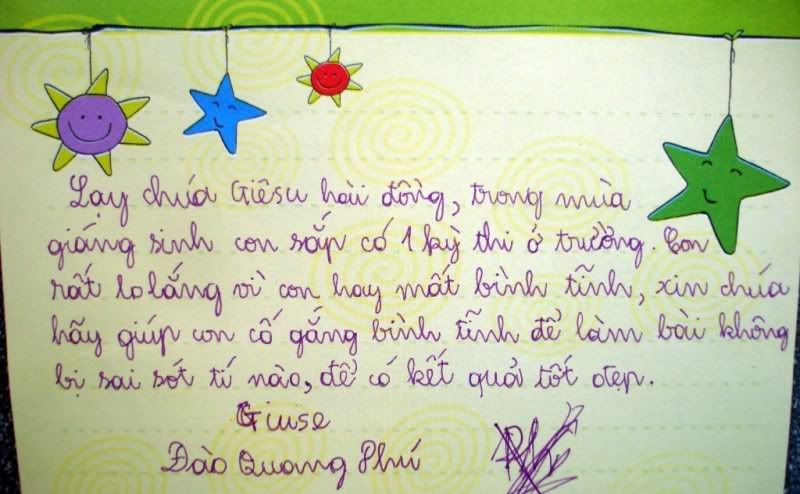 Lạy chúa Giêsu hài đồng, trong mùa
giáng sinh con sắp có 1 kỳ thi ở trường. Con
rất lo lắng vì con hay mất bình tĩnh, xin chúa
hãy giúp con cố gắng bình tĩnh để làm bài không
bị sai sót tí nào, để có kết quả tốt đẹp.
Giuse
Đào Quang Phú